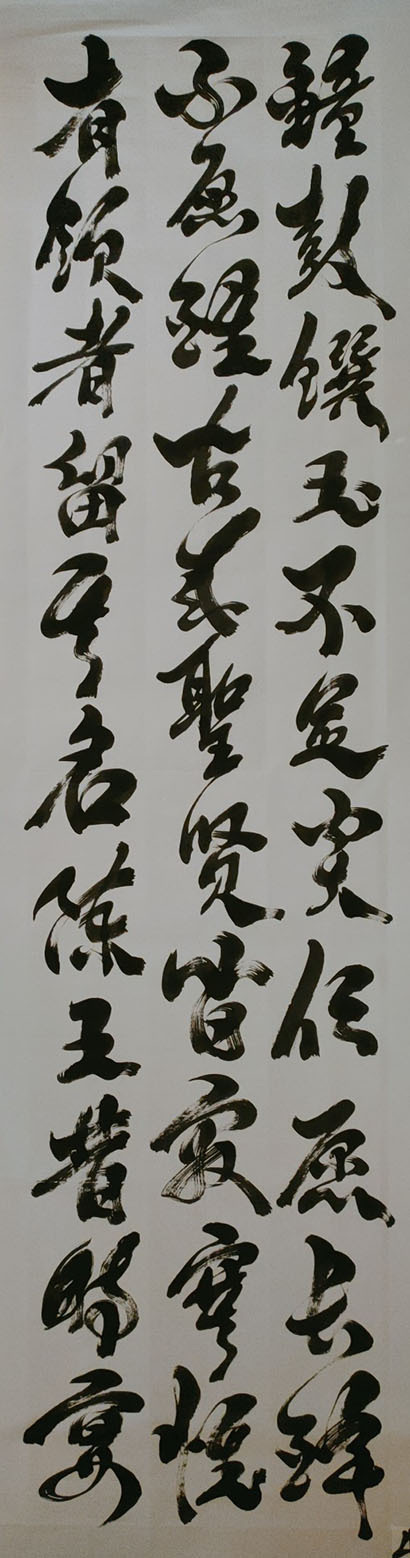 鐘鼓饌玉不足贵但愿长醉
不愿醒古来聖贤皆寂寞惟
有飲者留其名陳王昔時宴